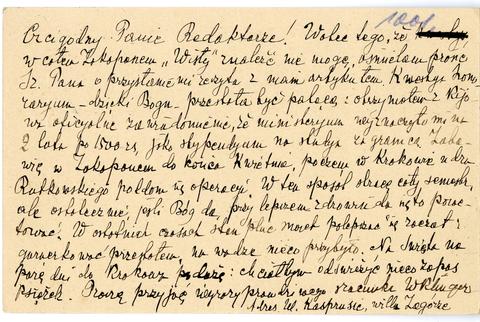 1001
Czcigodny Panie Redaktorze! Wobec tego, że
w całem Zakopanem „Wisły" znaleźć nie mogę, ośmielam prosić
Sz. Pana o przysłanie mi zeszytu z mam artykułem. Kwestya hono
raryum - dzięki Bogu - przestała być palącą: otrzymałem z Kijo
wa oficyalne zawiadomienie, że ministeryum wyznaczyło mi na
2 lata po 1500 rs, jako stypendyum na studya za granicą. Zaba
wię w Zakopanem do końca Kwietnia, poczem w Krakowie u dra
Rutkowskiego poddam się operacyi. W ten sposób stracę cały semestr,
ale ostatecznie, jeśli Bóg da, przy lepszem zdrowiu da się to powe
tować. W ostatnich czasach stan płuc moich polepszać się zaczął:
gorączkować przestałem, na wadze nieco przybyło. Na Święta na
parę dni do Krakowa podążę: chciałbym odświeżyć nieco zapas
książek. Proszę przyjąć wyrazy prawdziwego szacunku W Klinger
Adres: ul. Kasprusie, willa Zagórze